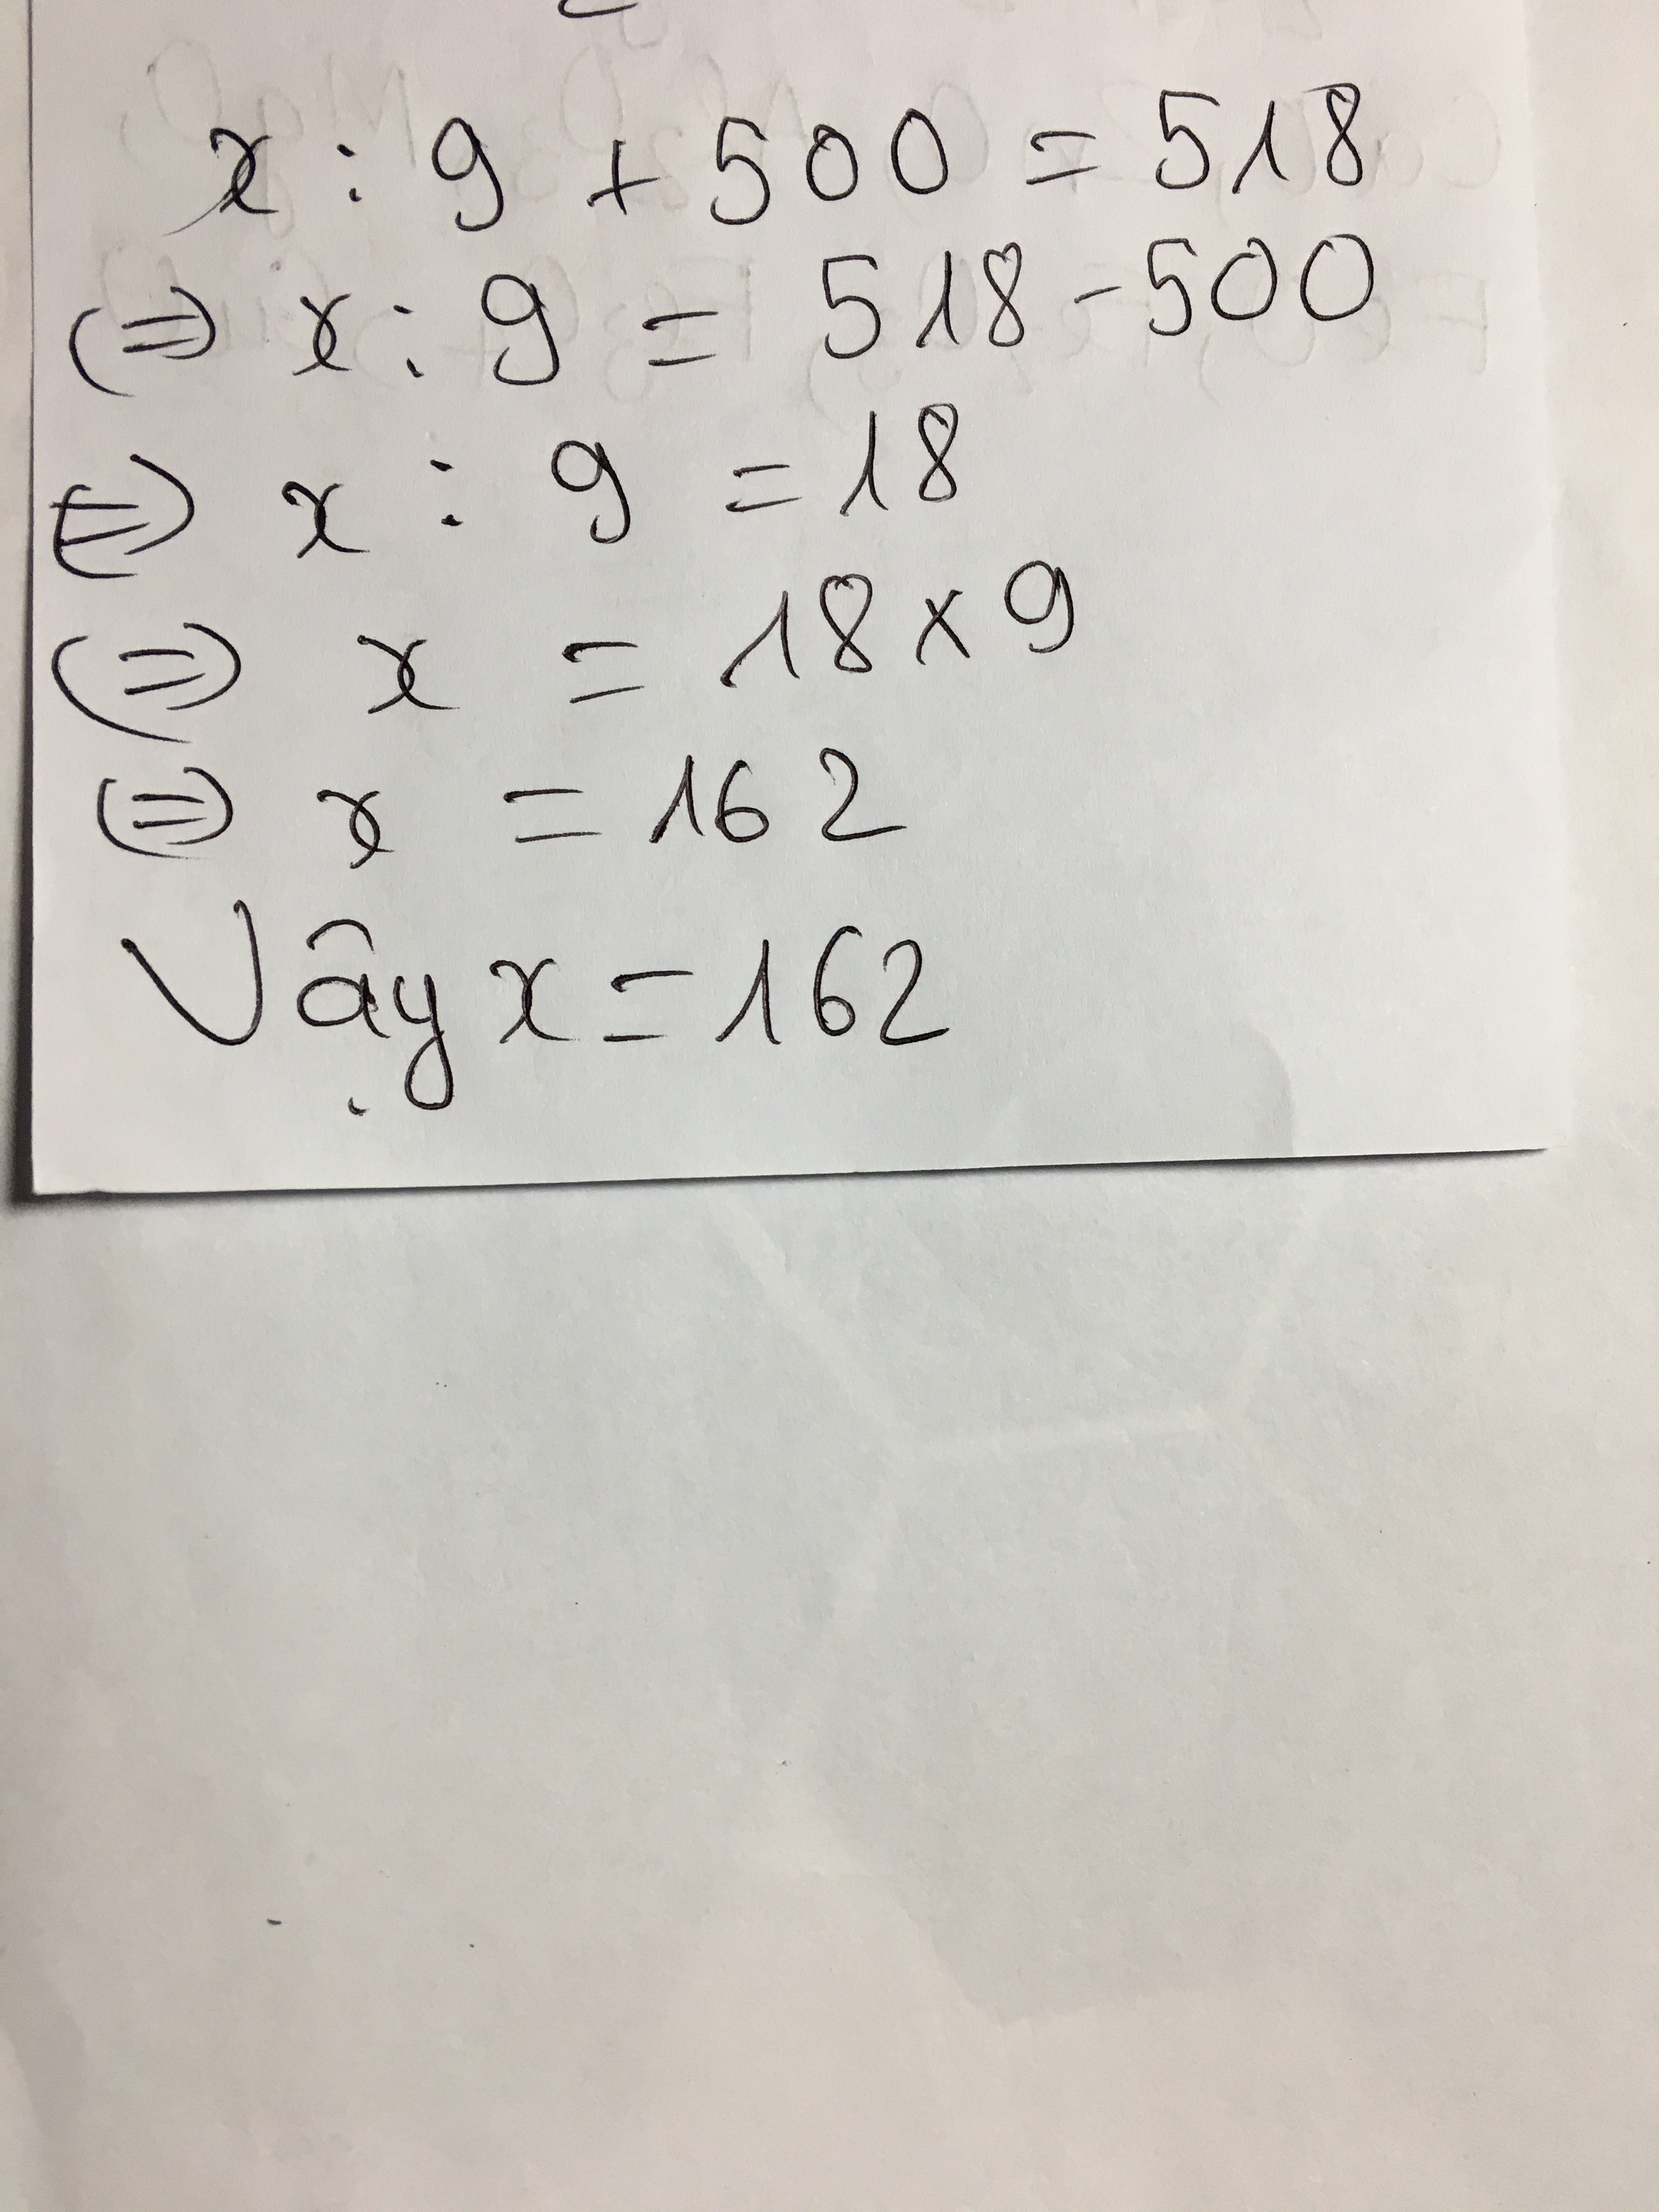 x : 9 + 500 = 518
(=) x : 9 = 518 - 500
(=) x : 9 = 18
(=) x = 18 x 9
(=) x = 162
Vậy x = 162